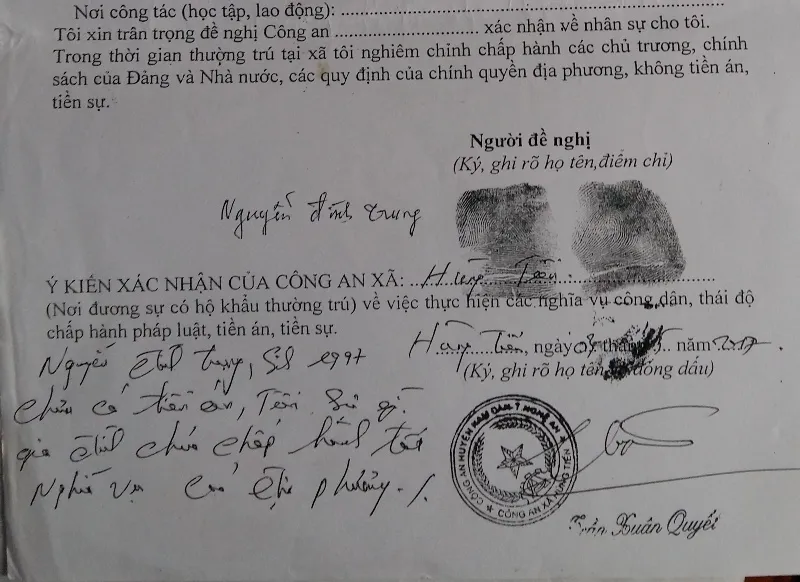 Nơi công tác (học tập, lao động): ........................
Tôi xin trân trọng đề nghị Công an ........................ xác nhận về nhân sự cho tôi.
Trong thời gian thường trú tại xã tôi nghiêm chỉnh chấp hành các chủ trương, chính
sách của Đảng và Nhà nước, các quy định của chính quyền địa phương, không tiền án,
tiền sự.
Người đề nghị
(Ký, ghi rõ họ tên,điểm chỉ)
Nguyễn đình Trung
Ý KIẾN XÁC NHẬN CỦA CÔNG AN XÃ: Hùng Tiến
(Nơi đương sự có hộ khẩu thường trú) về việc thực hiện các nghĩa vụ công dân, thái độ
chấp hành pháp luật, tiền án, tiền sự.
Hùng Tiến, ngày 03 tháng 5 năm 2017.
(Ký, ghi rõ họ tên, đóng dấu)
Nguyễn đình Trung, Sinh 1997
chưa có tiền án, Tiền Sự gì.
gia đình chấp hành tốt
Nghĩa vụ của địa phương./.
CÔNG AN HUYỆN NAM ĐÀN T NGHỆ AN
CÔNG AN XÃ HÙNG TIẾN
Trần Xuân Quyết